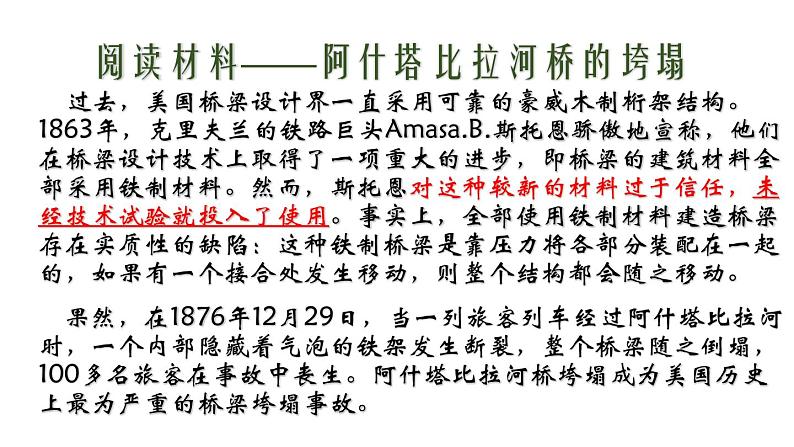 阅读材料——阿什塔比拉河桥的垮塌
过去，美国桥梁设计界一直采用可靠的豪威木制桁架结构。
1863年，克里夫兰的铁路巨头Amasa.B.斯托恩骄傲地宣称，他们
在桥梁设计技术上取得了一项重大的进步，即桥梁的建筑材料全
部采用铁制材料。然而，斯托恩对这种较新的材料过于信任，未
经技术试验就投入了使用。事实上，全部使用铁制材料建造桥梁
存在实质性的缺陷：这种铁制桥梁是靠压力将各部分装配在一起
的，如果有一个接合处发生移动，则整个结构都会随之移动。
果然，在1876年12月29日，当一列旅客列车经过阿什塔比拉河
时，一个内部隐藏着气泡的铁架发生断裂，整个桥梁随之倒塌，
100多名旅客在事故中丧生。阿什塔比拉河桥垮塌成为美国历史
上最为严重的桥梁垮塌事故。